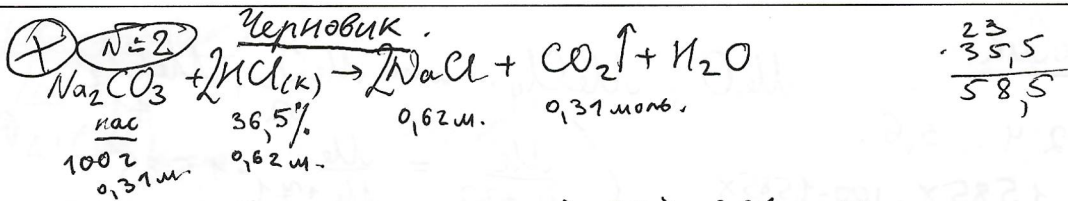 Черновик.
+ N=2
Na₂CO₃ + 2HCl(к) → 2NaCl + CO₂↑ + H₂O
нас 36,5% 0,62 м. 0,31 моль.
100 г 0,62 м.
0,31 м.
23
35,5
58,5